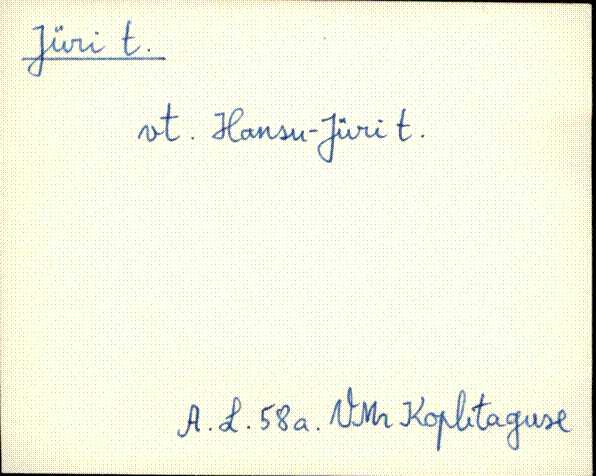 Jüri t.
vt. Hansu-Jüri t.
A. L. 58a. VMr Koplitaguse